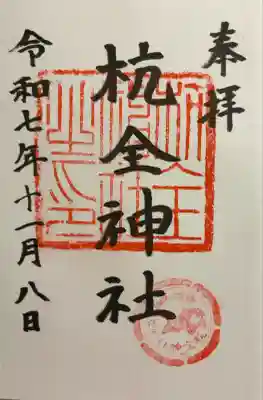 奉拝
杭全神社
令和七年十一月八日